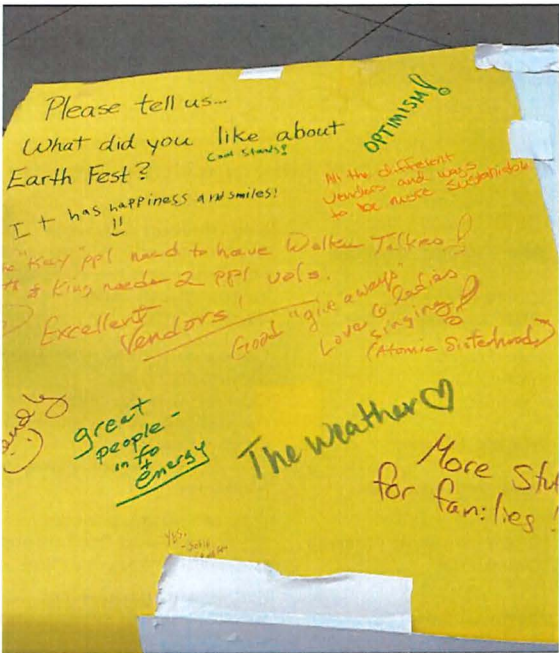 Please tell us...
What did you like about
Earth Fest?
Cool Stands!
OPTIMISM!
It has happiness and smiles!
All the different
vendors and ways
to be more sustainable
"Key" ppl need to have Walkie Talkies!
King needs 2 ppl vols.
Excellent
Vendors!
Good "give aways"
Love 6 ladies
singing!
(Atomic Sisterhood)
great
people -
info
+
energy
The weather
More Stu
for families!
YES.